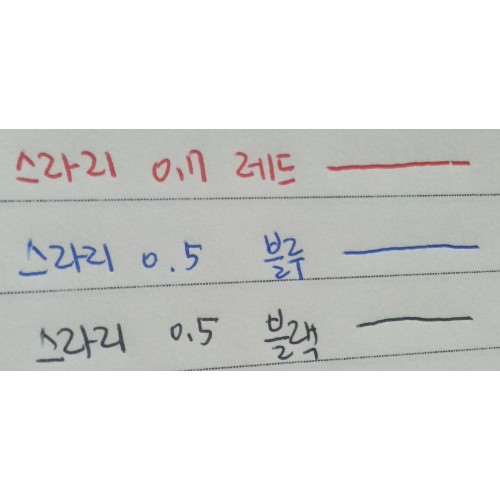 스라리 0.7 레드
스라리 0.5 블루
스라리 0.5 블랙